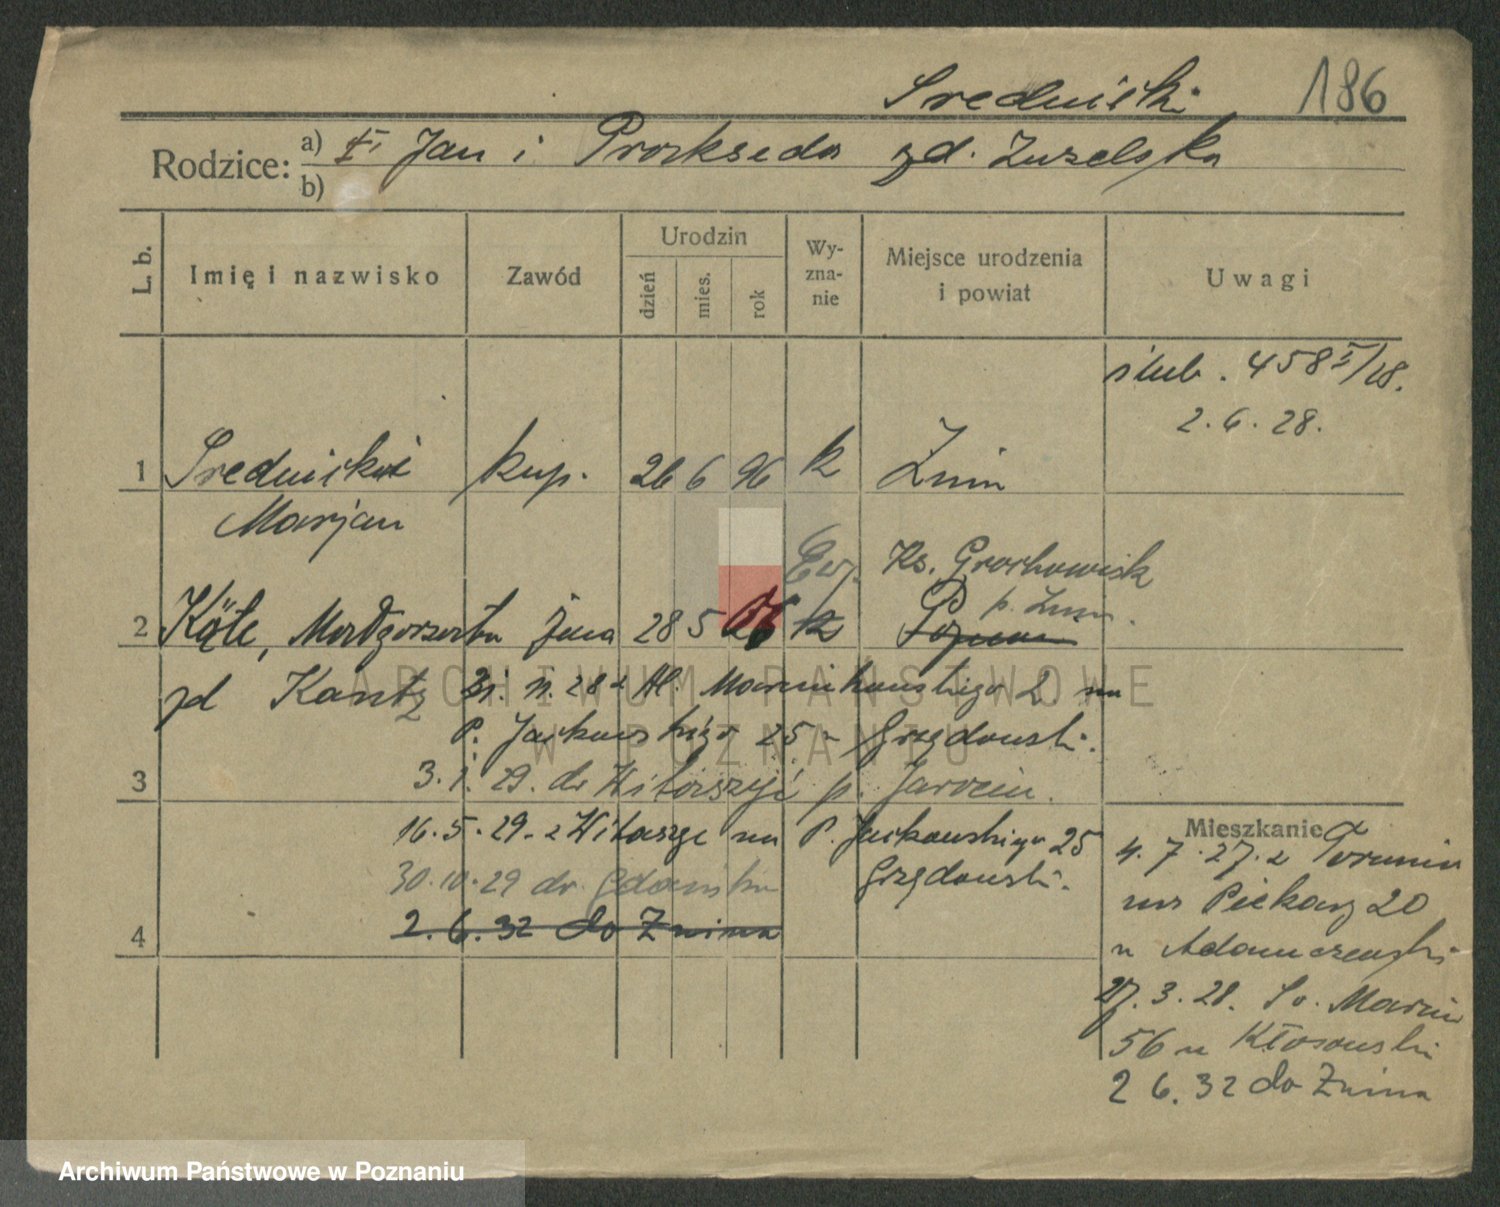 Sredniski 186
Rodzice: a) Jan i Prakseda zd. Zuzelska
b)
L. b. Imię i nazwisko Zawód Urodzin dzień mies. rok Wy-zna-nie Miejsce urodzenia i powiat Uwagi
ślub. 458 I/28.
2.6.28.
1 Sredniski kup. 26 6 96 k Żnin
Marjan
Ew. Ks. Grochowisk
p. Żnin.
2 Käte, Małgorzata żona 28 5 06 k Poznań
zd Kantz 31. 28 z Al. Marcinkowskiego 2 na
P. Jackowskiego 25 u Grzędowski.
3 3.1.29. do Witaszyc p. Jarocin.
16.5.29. z Witaszyc na P. Jackowskiego 25
Grzędowski.
30.10.29 do Gdańska
4 2.6.32 do Żnina
Mieszkanie
4.7.27. z Torunia
na Piekary 20
u Adamczewski
27.3.28. Św. Marcin
56 u Kłosowski
2 6.32 do Żnina
ARCHIWUM PAŃSTWOWE
W POZNANIU
Archiwum Państwowe w Poznaniu